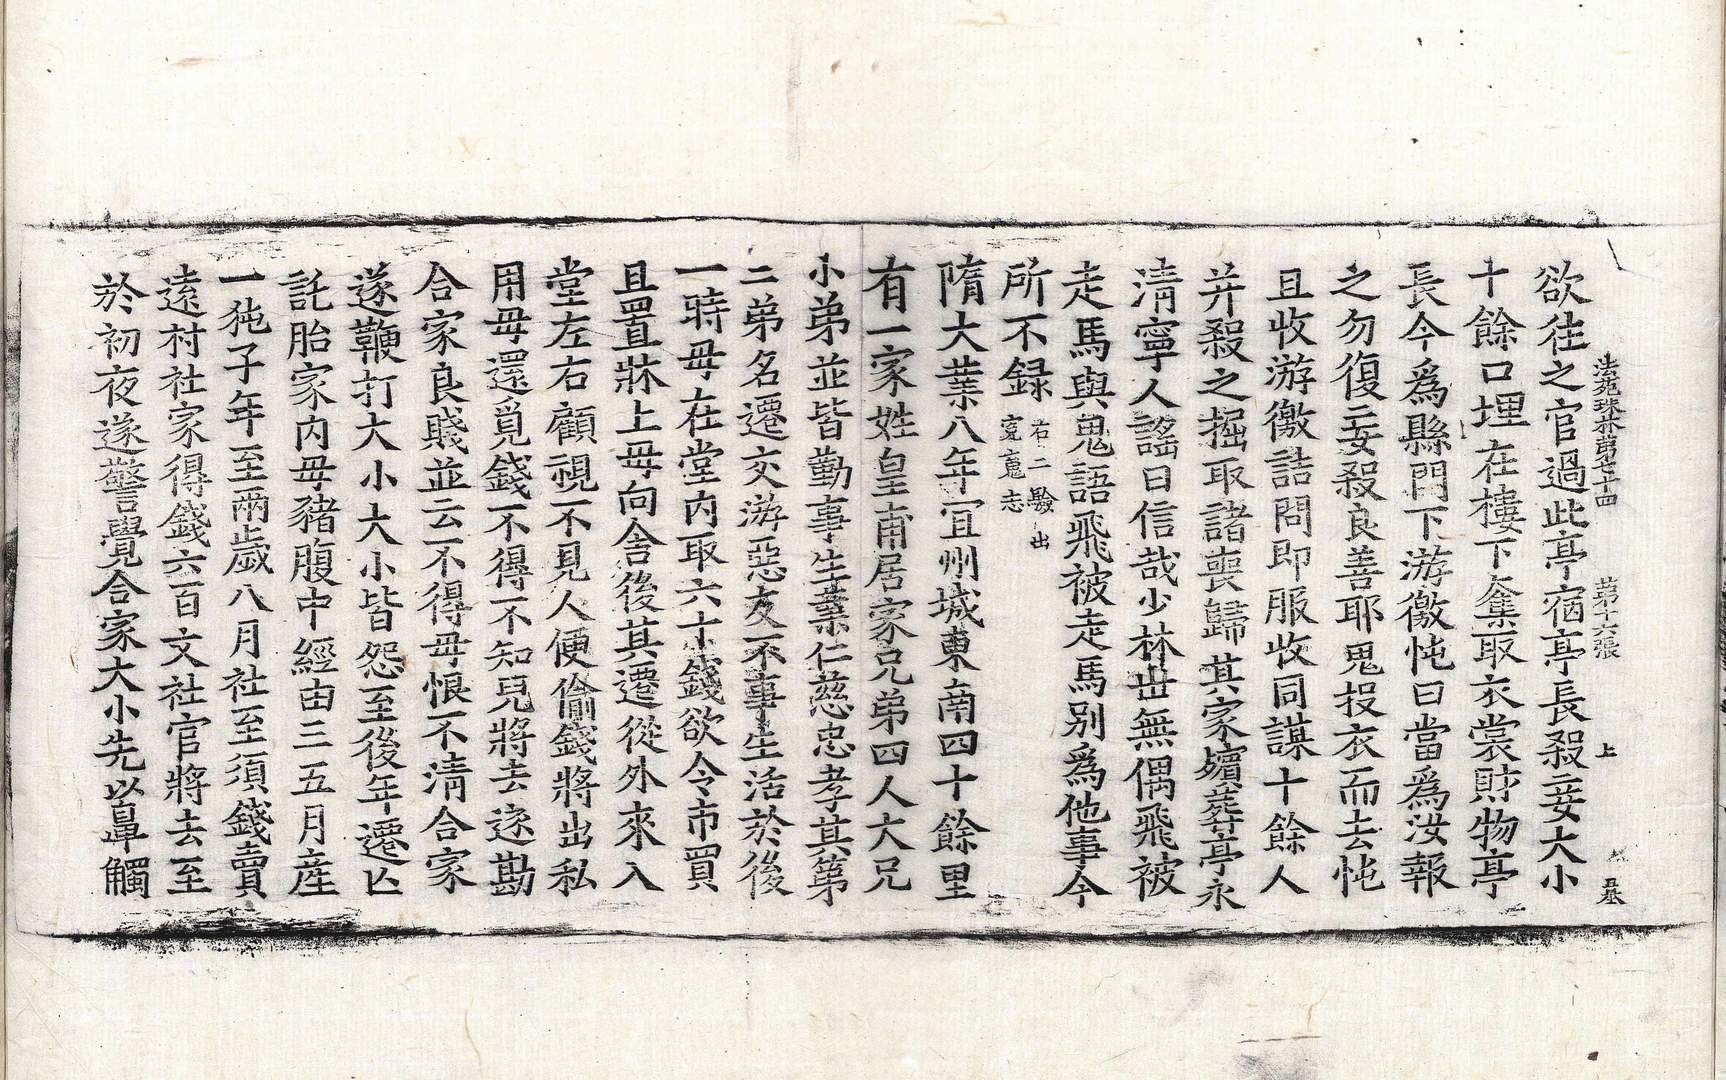 法苑珠林第七十四 第十六張 上
欲往之官過此亭宿亭長殺妾大小
十餘口埋在樓下奪取衣裳財物亭
長今爲縣門下游徼忳曰當爲汝報
之勿復妄殺良善耶鬼投衣而去忳
且收游徼詰問即服收同謀十餘人
并殺之掘取諸喪歸其家殯葬亭永
淸寧人謠曰信哉少林世無偶飛被
走馬與鬼語飛被走馬别爲他事今
所不録右二驗出寃䰟志
隋大業八年冝州城東南四十餘里
有一家姓皇甫居家兄弟四人大兄
小弟並皆勤事生業仁慈忠孝其第
二弟名遷交游惡友不事生活於後
一時母在堂内取六十錢欲令市買
且置牀上母向舍後其遷從外來入
堂左右顧視不見人便偷錢將出私
用母還覓錢不得不知兒將去逐勘
合家良賤並云不得母恨不淸合家
遂鞭打大小大小皆怨至後年遷亡
託胎家内母豬腹中經由三五月産
一㹠子年至兩歲八月社至須錢賣
遠村社家得錢六百文社官將去至
於初夜遂警覺合家大小先以鼻觸